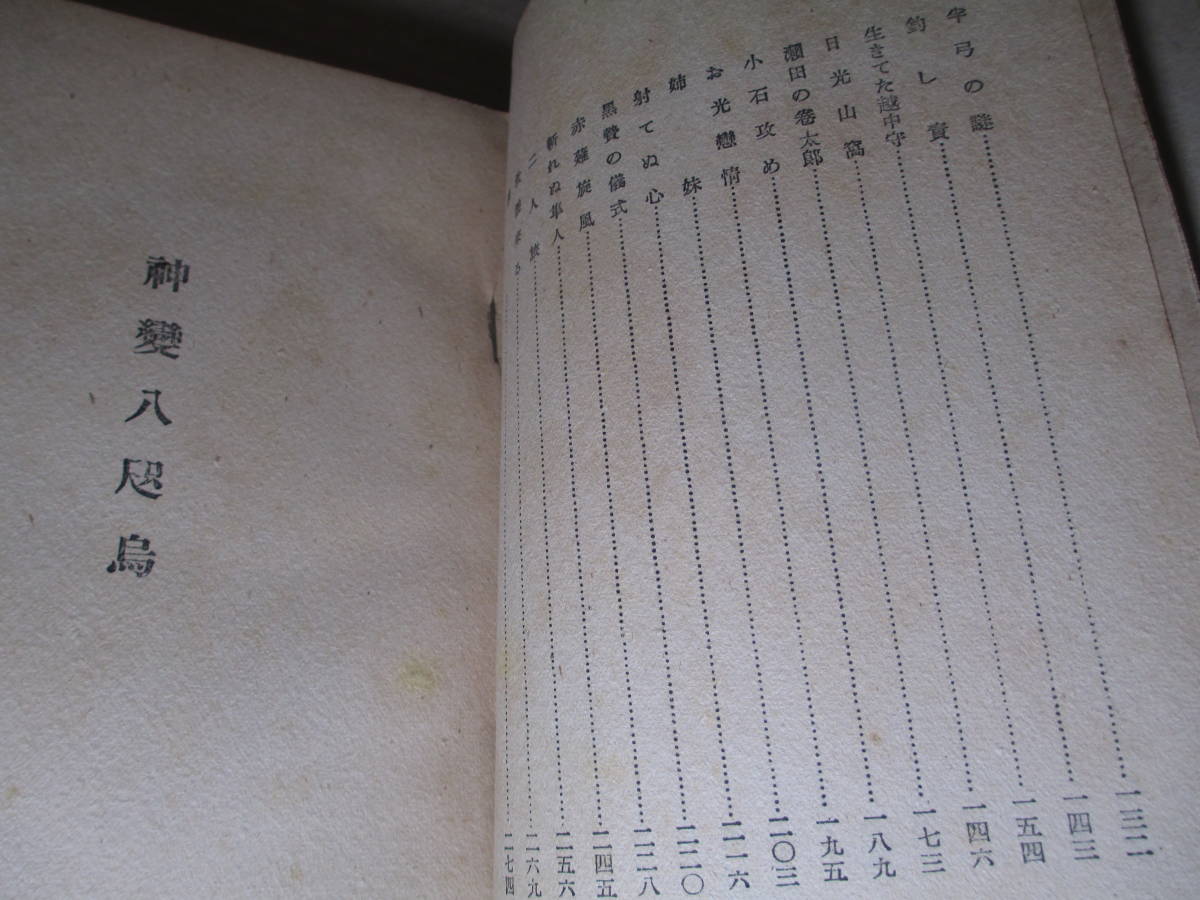 半弓の謎……一三二
釣し責……一四三
生きてた越中守……一五四
日光山窩……一四六
田の卷太郎……一七三
小石攻め……一八九
お光戀情……一九五
姉妹……二〇三
射てぬ心……二一六
黒贄の儀式……二二〇
赤薙旋風……二二八
斬れぬ隼人……二四五
二人旅……二五六
る……二六九
……二七四
神變八咫烏